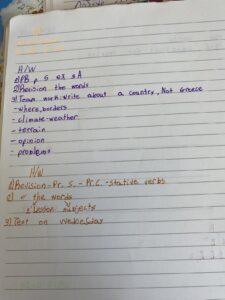 H/W
1) PB p 5 ex 3A
2) Revision the words
3) Team work-write about a country, Not Greece
-where, borders
-climate-weather
-terrain
-opinion
-problems
H/W
1) Revision-Pr. S. - Pr.C. -stative verbs
2) the words
Lesson subjects
3) Test on Wednesday